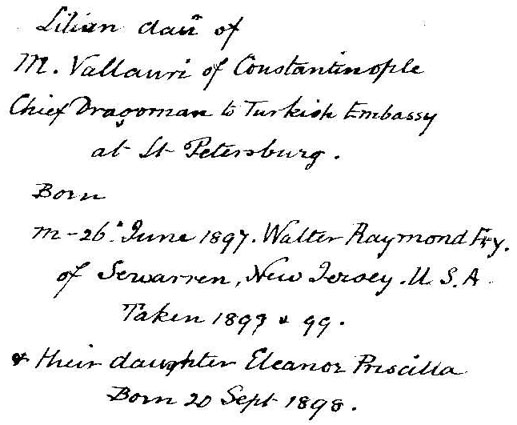 Lilian daur of
M. Vallauri of Constantinople
Chief Dragoman to Turkish Embassy
at St Petersburg.
Born
m - 26. June 1897. Walter Raymond Fry.
of Sewarren, New Jersey. U.S.A
Taken 1897 & 99.
& their daughter Eleanor Priscilla
Born 20 Sept 1898.